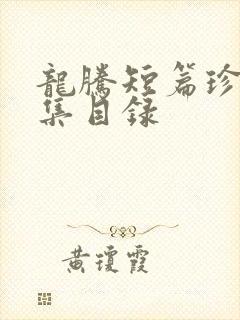 龍騰短篇珍
集目録
黄瓊霞